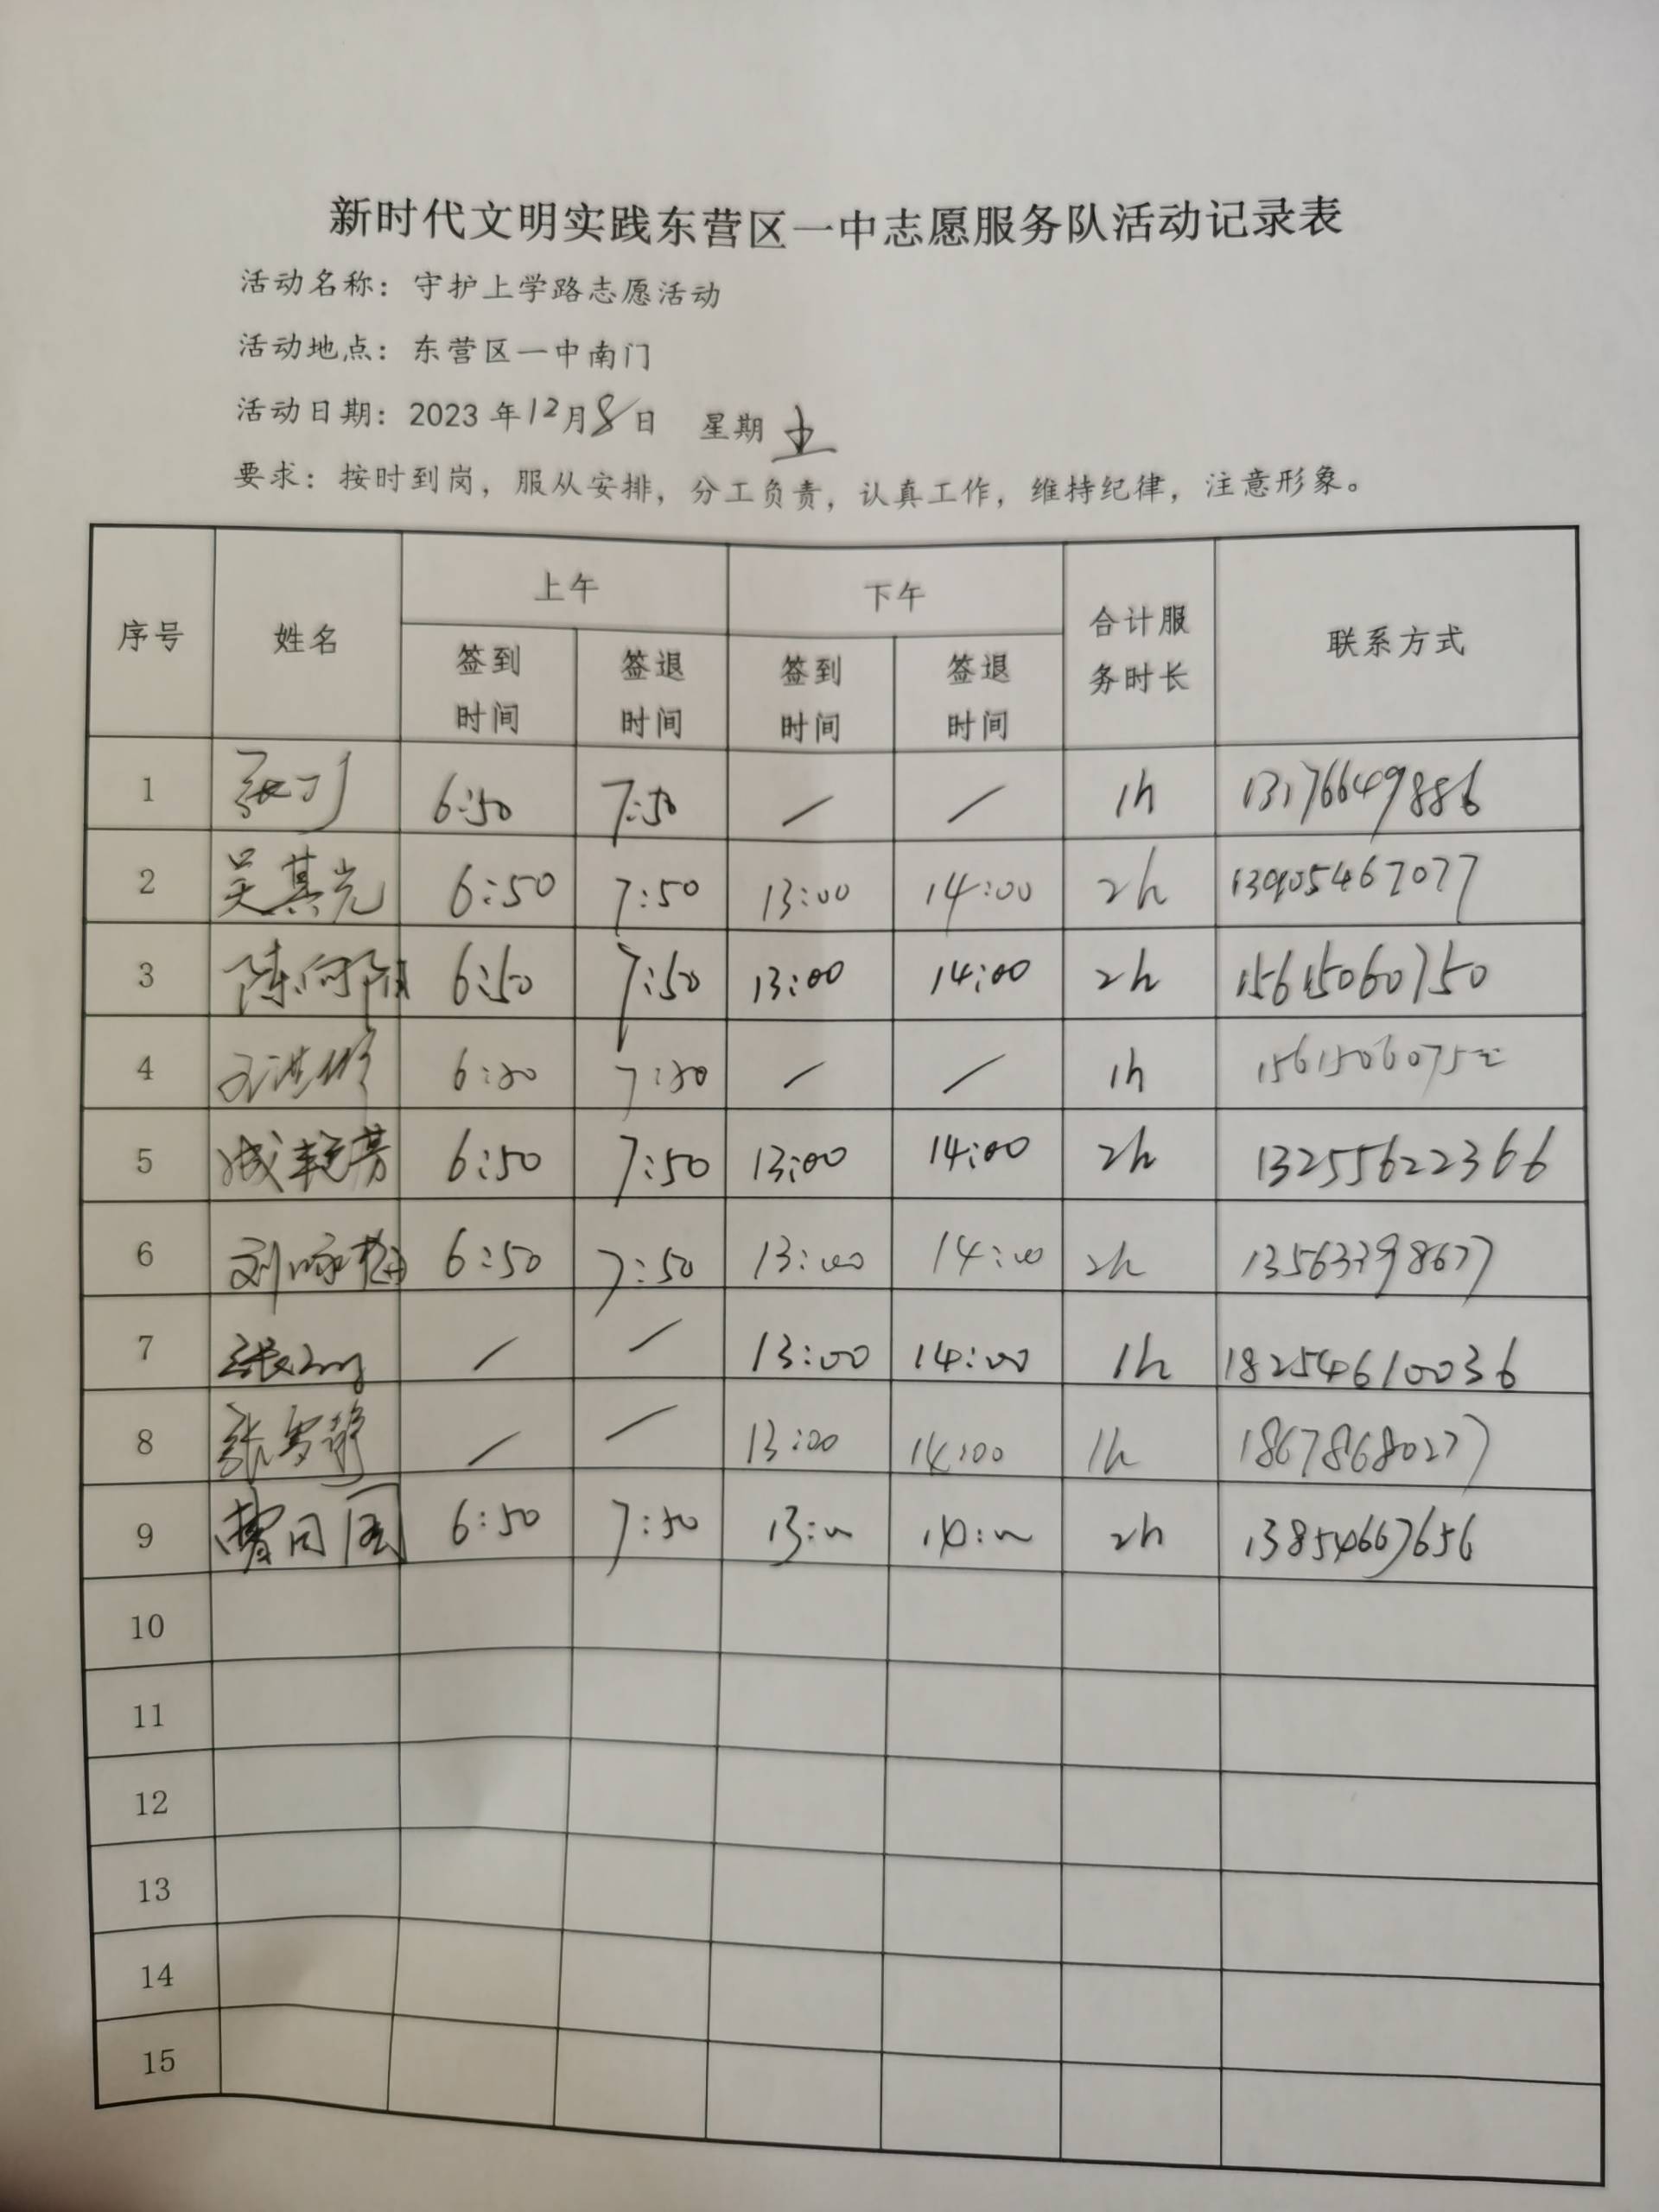 新时代文明实践东营区一中志愿服务队活动记录表
活动名称：守护上学路志愿活动
活动地点：东营区一中南门
活动日期：2023年12月8日 星期五
要求：按时到岗，服从安排，分工负责，认真工作，维持纪律，注意形象。
序号 姓名 上午 下午 合计服务时长 联系方式
签到时间 签退时间 签到时间 签退时间
1 6:50 7:50 / / 1h 13176649886
2 吴其光 6:50 7:50 13:00 14:00 2h 13905467077
3 陈向阳 6:50 7:50 13:00 14:00 2h 15615060750
4 6:50 7:50 / / 1h
5 成艳芳 6:50 7:50 13:00 14:00 2h 13255622366
6 刘咏梅 6:50 7:50 13:00 14:00 2h
7 / / 13:00 14:00 1h 18254610036
8 张雪静 / / 13:00 14:00 1h 18678680277
9 曹同国 6:50 7:50 13:00 14:00 2h 13854667656
10
11
12
13
14
15